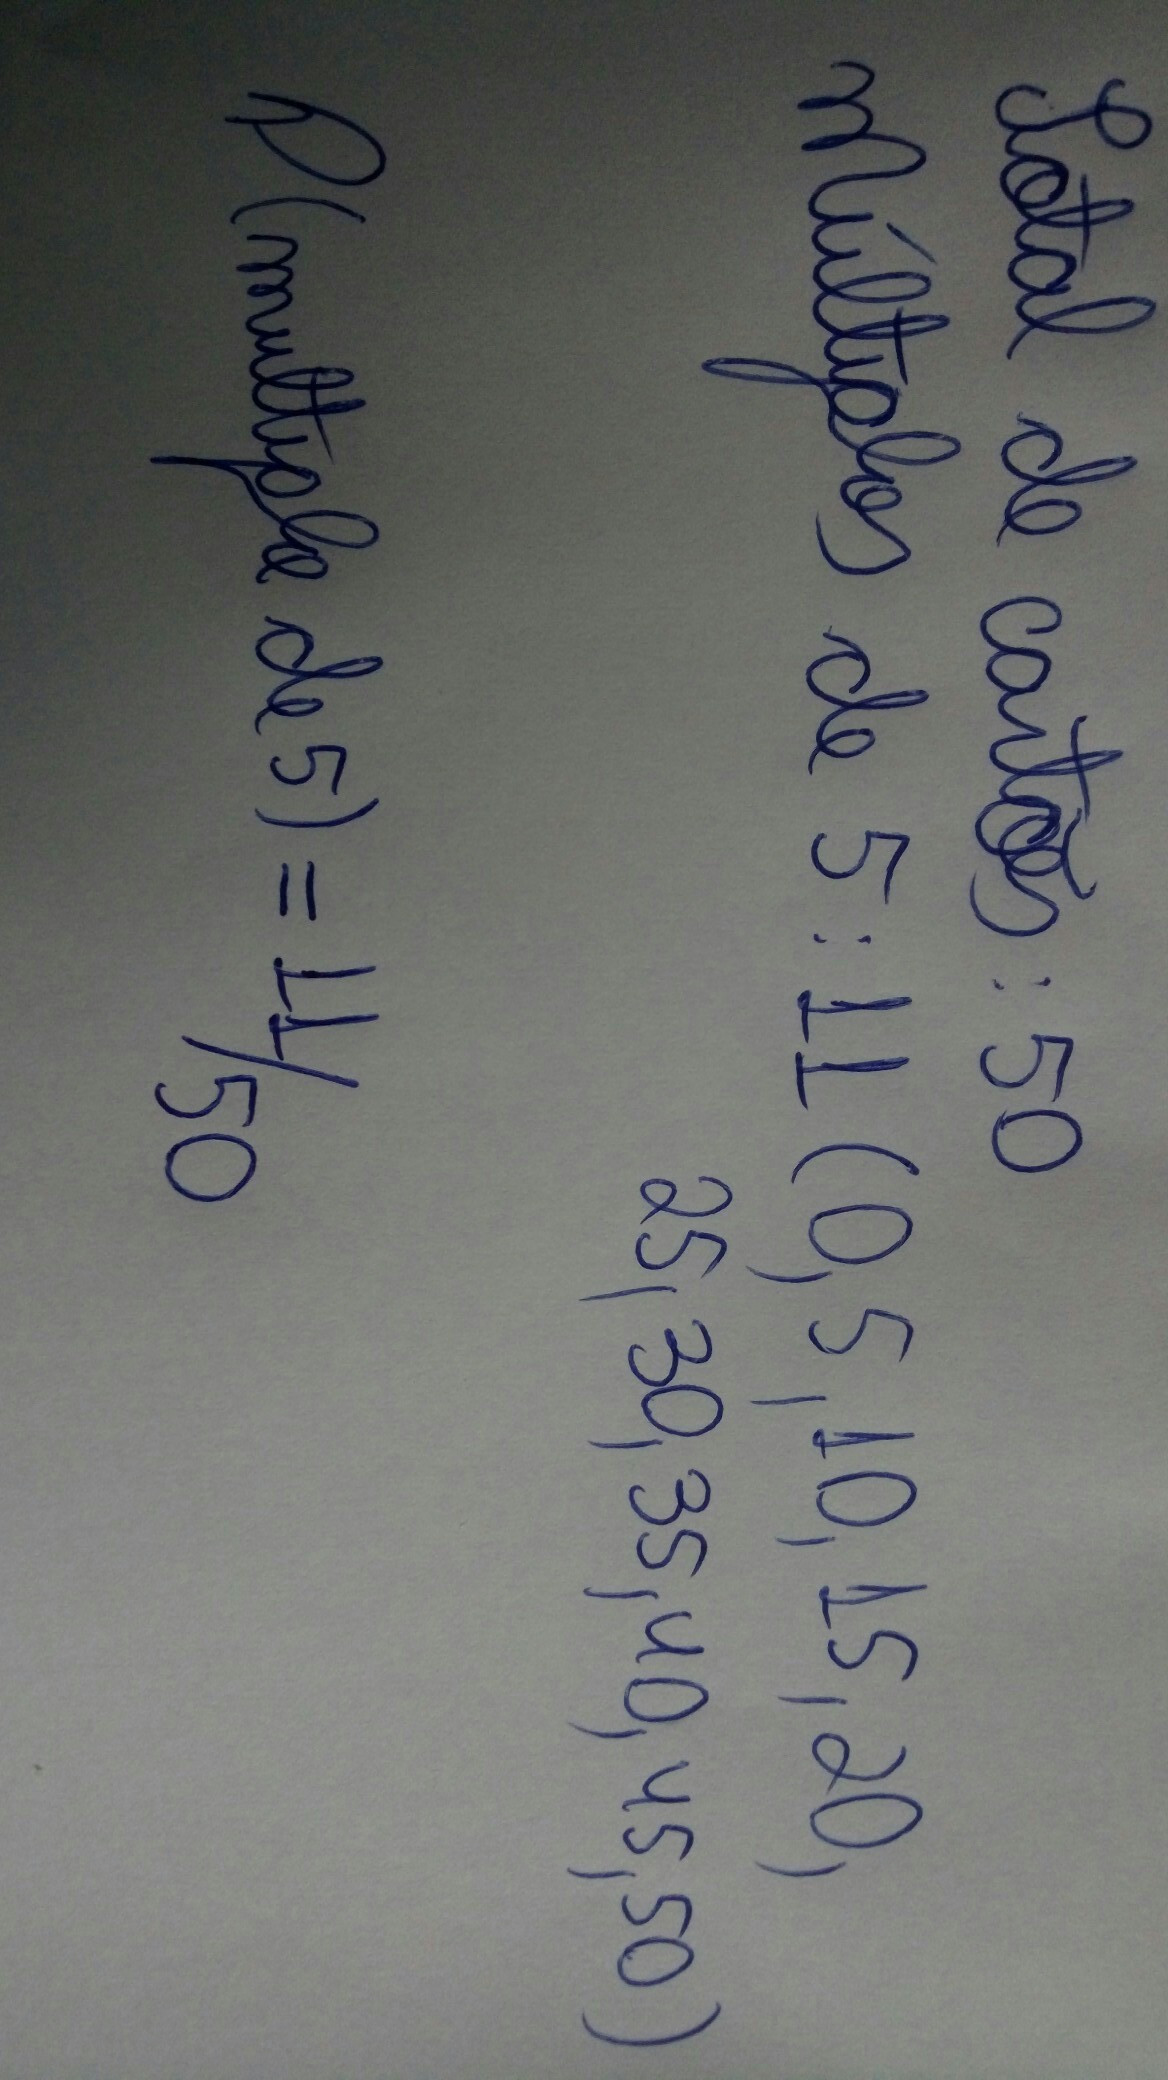 Total de cartões: 50
Múltiplos de 5: 11 (0, 5, 10, 15, 20,
25, 30, 35, 40, 45, 50)
P(multiplo de 5) = 11/50